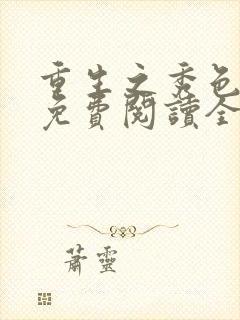 重生之秀色
免費閱讀全
蕭靈